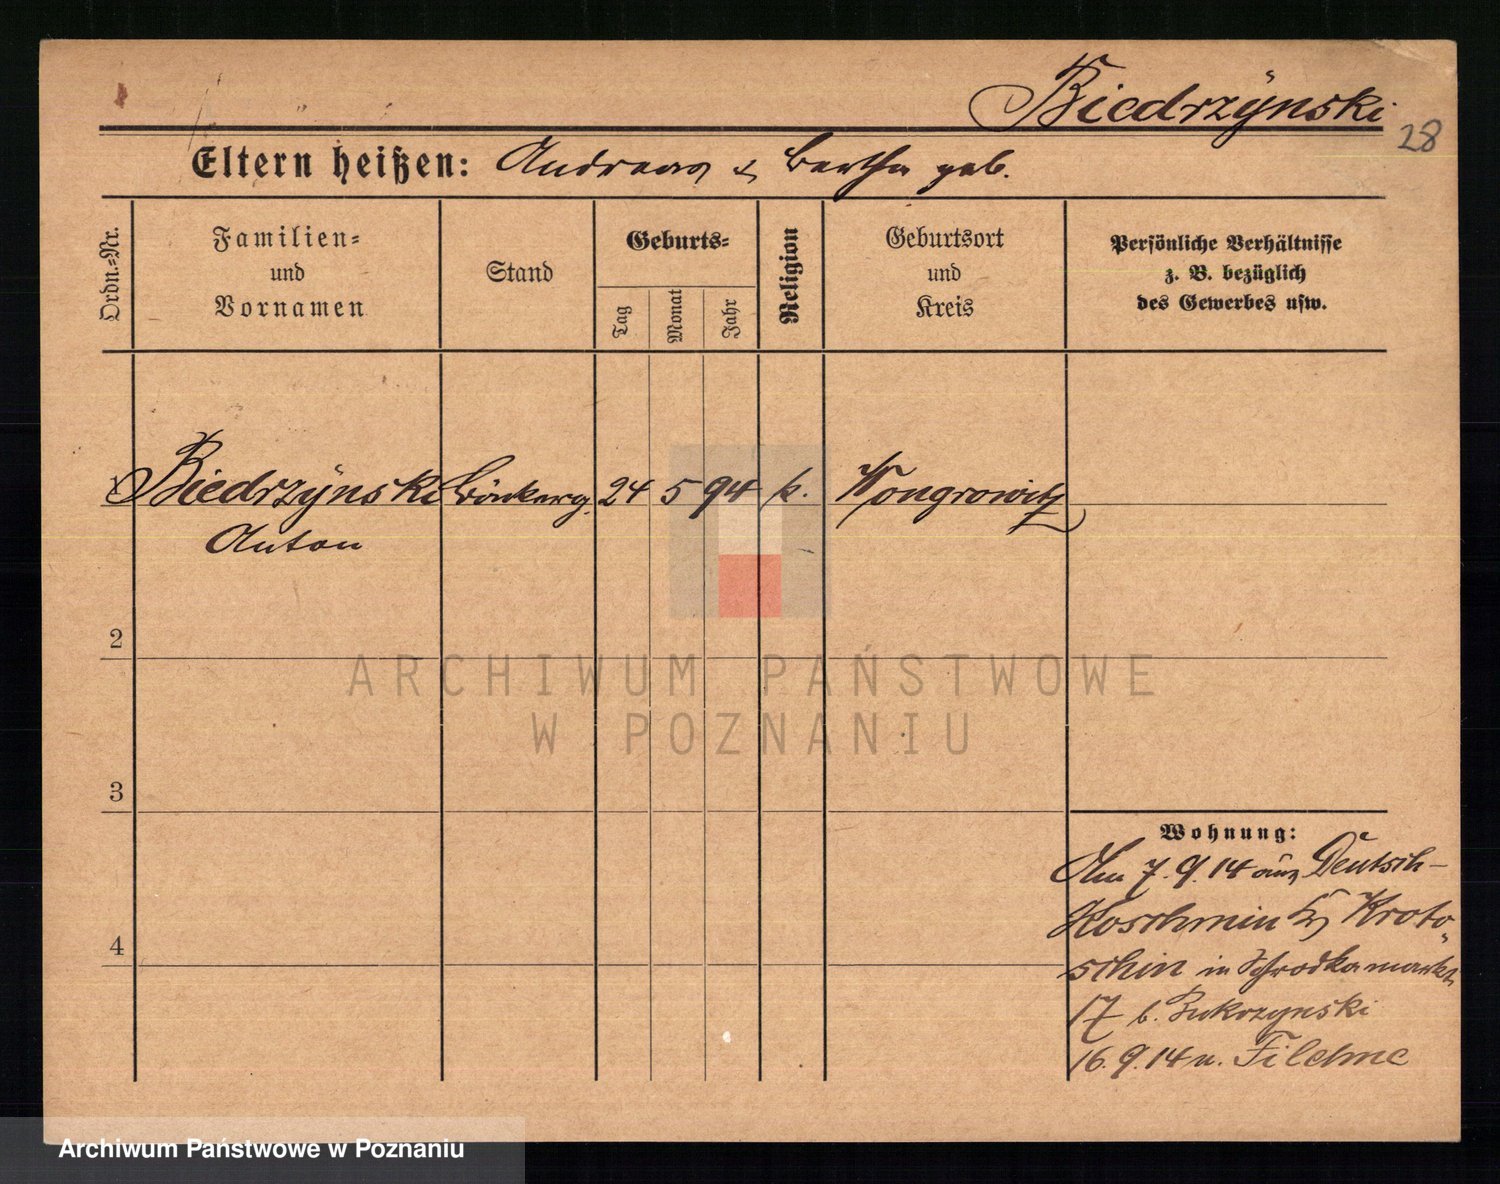 Biedrzynski
28
Eltern heißen: Andreas & Bertha geb.
Ordn.-Nr.
Familien-
und
Vornamen
Stand
Geburts-
Tag
Monat
Jahr
Religion
Geburtsort
und
Kreis
Persönliche Verhältnisse
z. B. bezüglich
des Gewerbes usw.
Biedrzynski
Anton
24
5
94
k.
Wongrowitz
2
3
4
Wohnung:
Am 7.9.14 aus Deutsch-
Koschmin Kr Kroto-
schin in Schrodkamarkt
17 b.
16.9.14 n. Filehne
ARCHIWUM PAŃSTWOWE
W POZNANIU
Archiwum Państwowe w Poznaniu